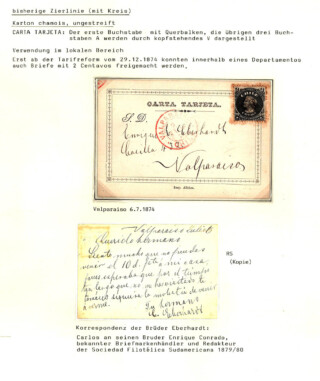 bisherige Zierlinie (mit Kreis)
Karton chamois, ungestreift
CARTA TARJETA: Der erste Buchstabe mit Querbalken, die übrigen drei Buch-
staben A werden durch kopfstehendes V dargestellt
Verwendung im lokalen Bereich
Erst ab der Tarifreform vom 29.12.1874 konnten innerhalb eines Departamentos
auch Briefe mit 2 Centavos freigemacht werden.
CARTA TARJETA.
S. D.
Enrique C. Eberhardt
Casilla
Valparaiso
Valparaiso 6.7.1874
Valparaiso Julio 6
Querido hermano
Siento mucho que no pudo
venir el 10 de
esperaba que
a verme.
Tu hermano
C. Eberhardt
RS
(Kopie)
Korrespondenz der Brüder Eberhardt:
Carlos an seinen Bruder Enrique Conrado,
bekannter Briefmarkenhändler und Redakteur
der Sociedad filatélica Sudamericana 1879/80